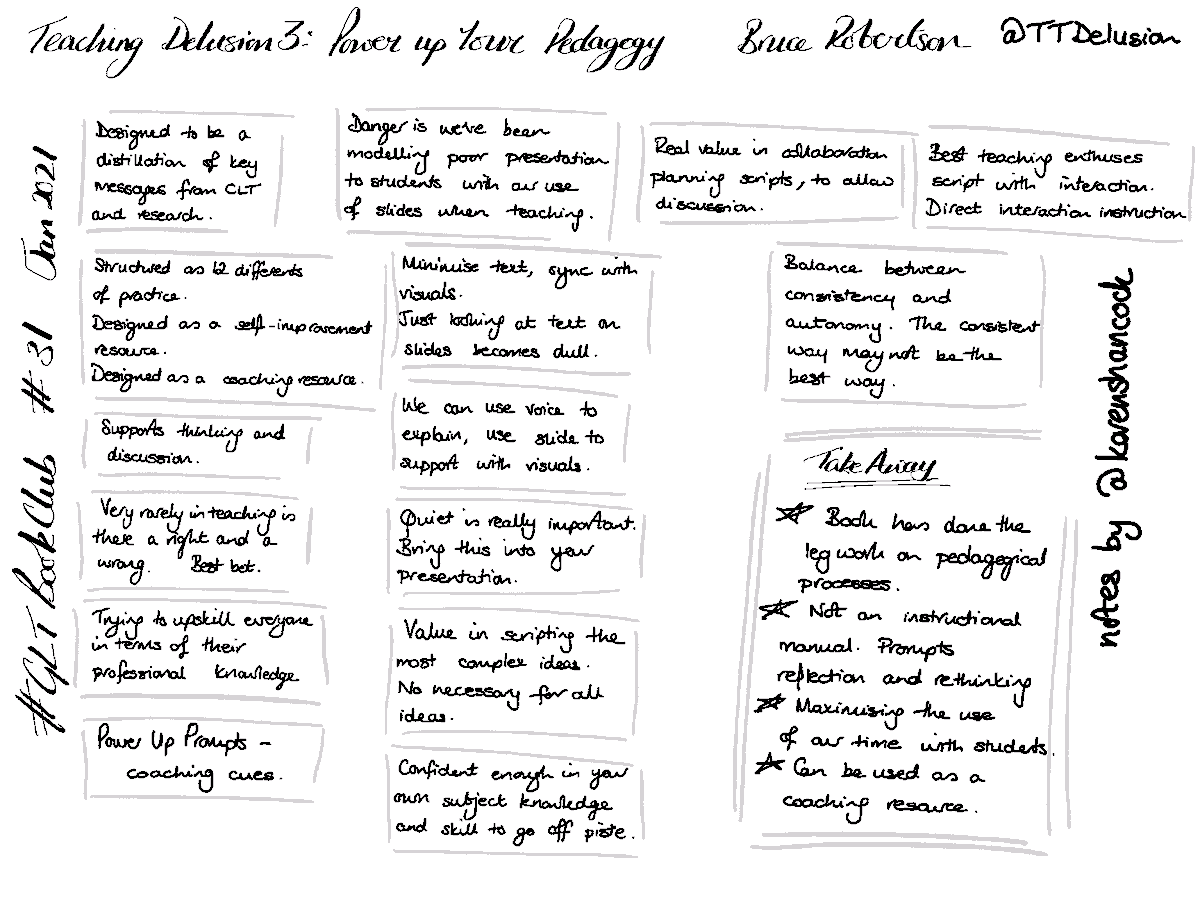 Teaching Delusion 3: Power up Your Pedagogy Bruce Robertson @TTDelusion
#GLTBookClub #31 Jan 2021
Designed to be a
distillation of key
messages from CLT
and research.
Structured as 12 differents
of practice.
Designed as a self-improvement
resource.
Designed as a coaching resource.
Supports thinking and
discussion.
Very rarely in teaching is
there a right and a
wrong. Best bet.
Trying to upskill everyone
in terms of their
professional knowledge
Power Up Prompts –
coaching cues.
Danger is we've been
modelling poor presentation
to students with our use
of slides when teaching.
Minimise text, sync with
visuals.
Just looking at text on
slides becomes dull.
We can use voice to
explain, use slide to
support with visuals.
Quiet is really important.
Bring this into your
presentation.
Value in scripting the
most complex ideas.
No necessary for all
ideas.
Confident enough in your
own subject knowledge
and skill to go off piste.
Real value in collaboration
planning scripts, to allow
discussion.
Best teaching enthuses
script with interaction.
Direct interaction instruction
Balance between
consistency and
autonomy. The consistent
way may not be the
best way.
Take Away
Book has done the
leg work on pedagegical
processes.
Not an instructional
manual. Prompts
reflection and rethinking
Maximising the use
of our time with students.
Can be used as a
coaching resource.
notes by @karenshancock